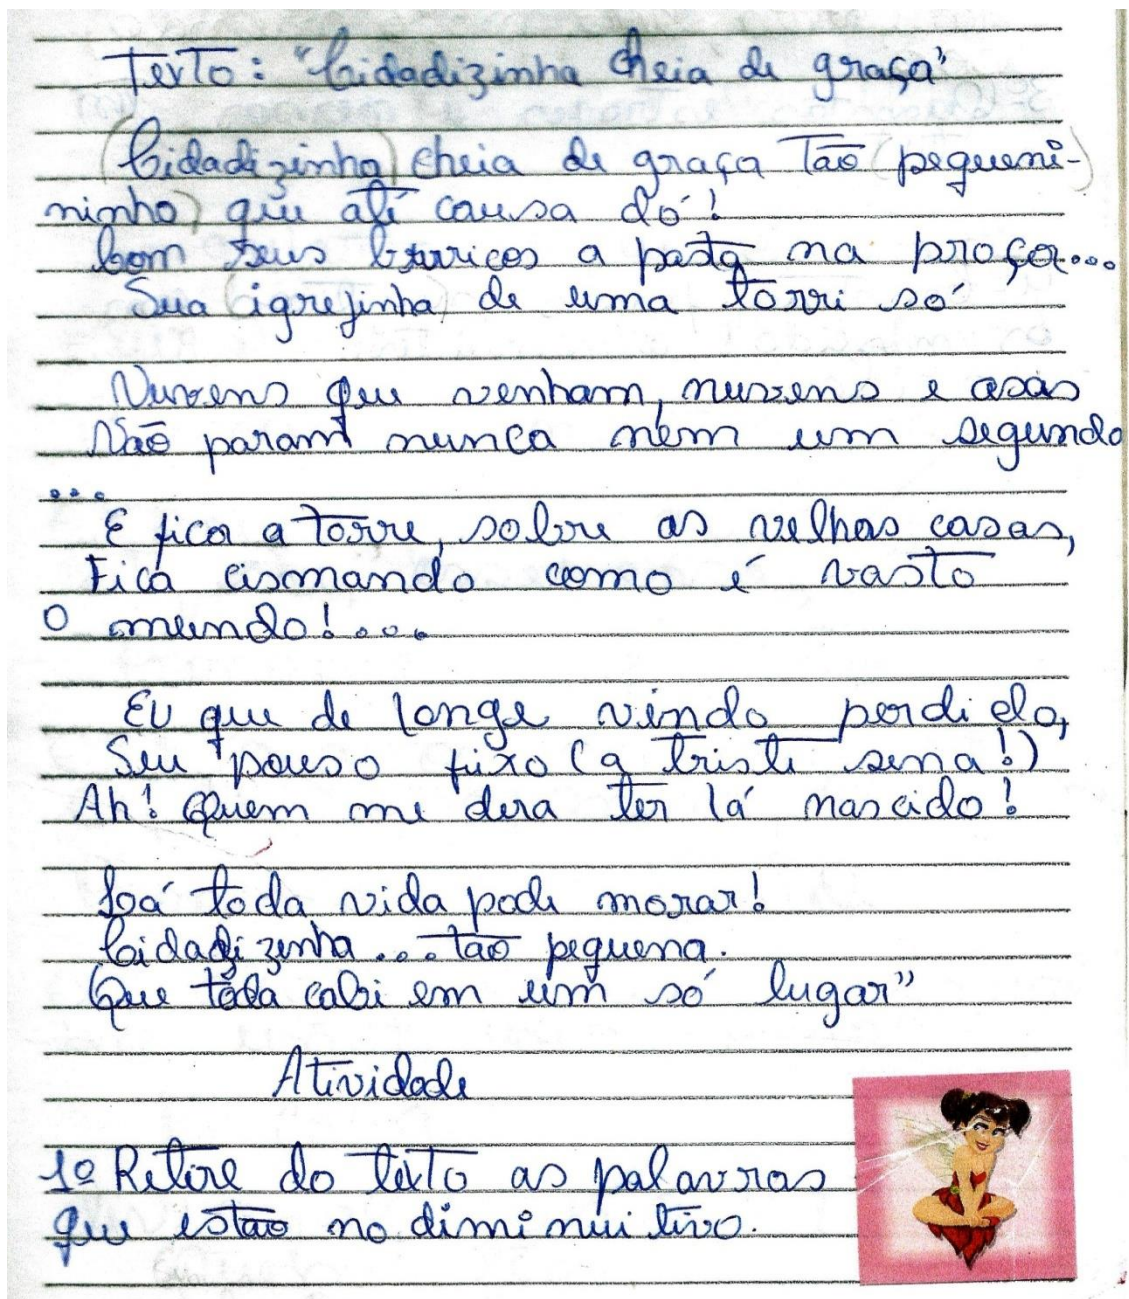 Texto: "Cidadizinha cheia de graça"
(Cidadizinha) cheia de graça Tão (pequeni-)
ninha) que até causa dó!
Com seus burricos a pasta na praça...
Sua (igrejinha) de uma torri só
Nuvens que venham, nuvens e asas
Não param nunca nem um segundo
...
E fica a torre, sobre as velhas casas,
Fica cismando como é vasto
O mundo!...
Eu que de longe vindo perdi elo,
Seu pouso fixo (a tristi sena!)
Ah! Quem me dera ter lá nascido!
Lá toda vida pode morar!
Cidadizinha... tão pequena.
Que toda cabi em um só lugar"
Atividade
1º Retire do texto as palavras
que estão no diminuitivo.